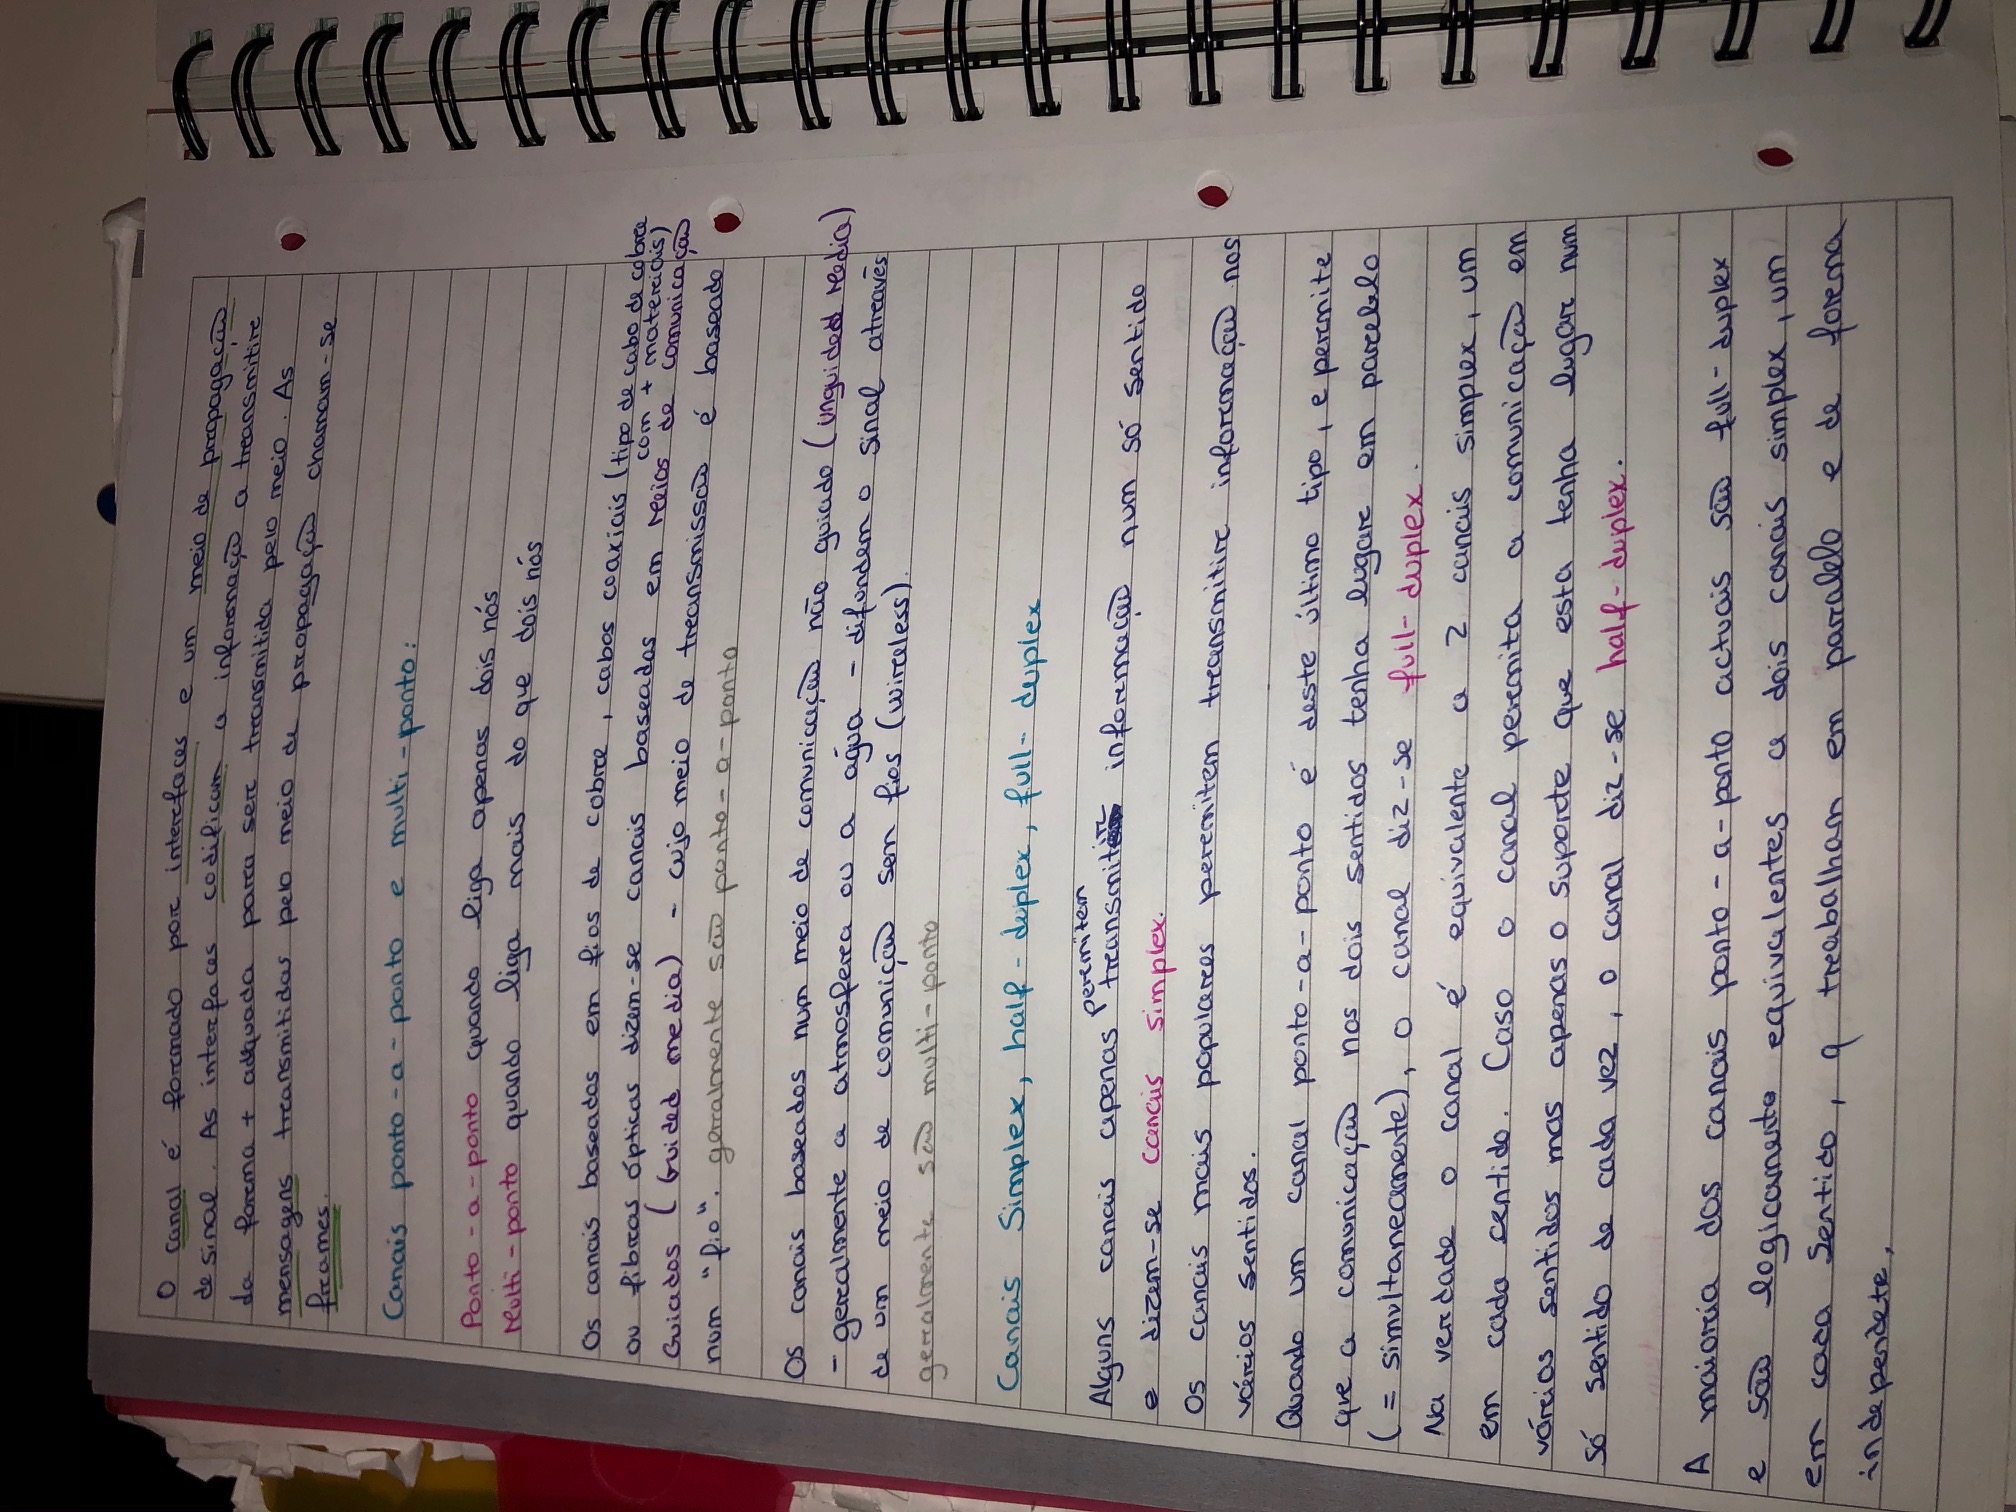 O canal é formado por interfaces e um meio de propagação
de sinal. As interfaces codificam a informação a transmitir
da forma + adquada para ser transmitida pelo meio. As
mensagens transmitidas pelo meio de propagação chamam-se
frames.
Canais ponto-a-ponto e multi-ponto:
Ponto-a-ponto quando liga apenas dois nós
Multi-ponto quando liga mais do que dois nós
Os canais baseados em fios de cobre, cabos coaxiais (tipo de cabo de cobre
com + materiais)
ou fibras ópticas dizem-se canais baseados em Meios de comunicação
Guiados (Guided media) - cujo meio de transmissão é baseado
num "fio". geralmente são ponto-a-ponto
Os canais baseados num meio de comunicação não guiado (unguided media)
- geralmente a atmosfera ou a água - difundem o sinal através
de um meio de comunição sem fios (wireless).
geralmente são multi-ponto
Canais Simplex, half-duplex, full-duplex
Alguns canais apenas permitem transmitir informação num só sentido
e dizem-se canais simplex.
Os canais mais populares permitem transmitir informação nos
vários sentidos.
Quando um canal ponto-a-ponto é deste último tipo, e permite
que a comunicação nos dois sentidos tenha lugar em parelelo
(= simultaneamente), o canal diz-se full-duplex.
Na verdade o canal é equivalente a 2 canais simplex, um
em cada centido. Caso o canal permita a comunicação em
vários sentidos mas apenas o suporte que esta tenha lugar num
só sentido de cada vez, o canal diz-se half-duplex.
A maioria dos canais ponto-a-ponto actuais são full-duplex
e são logicamente equivalentes a dois canais simplex, um
em cada sentido, q trabalham em parralelo e de forma
independete,